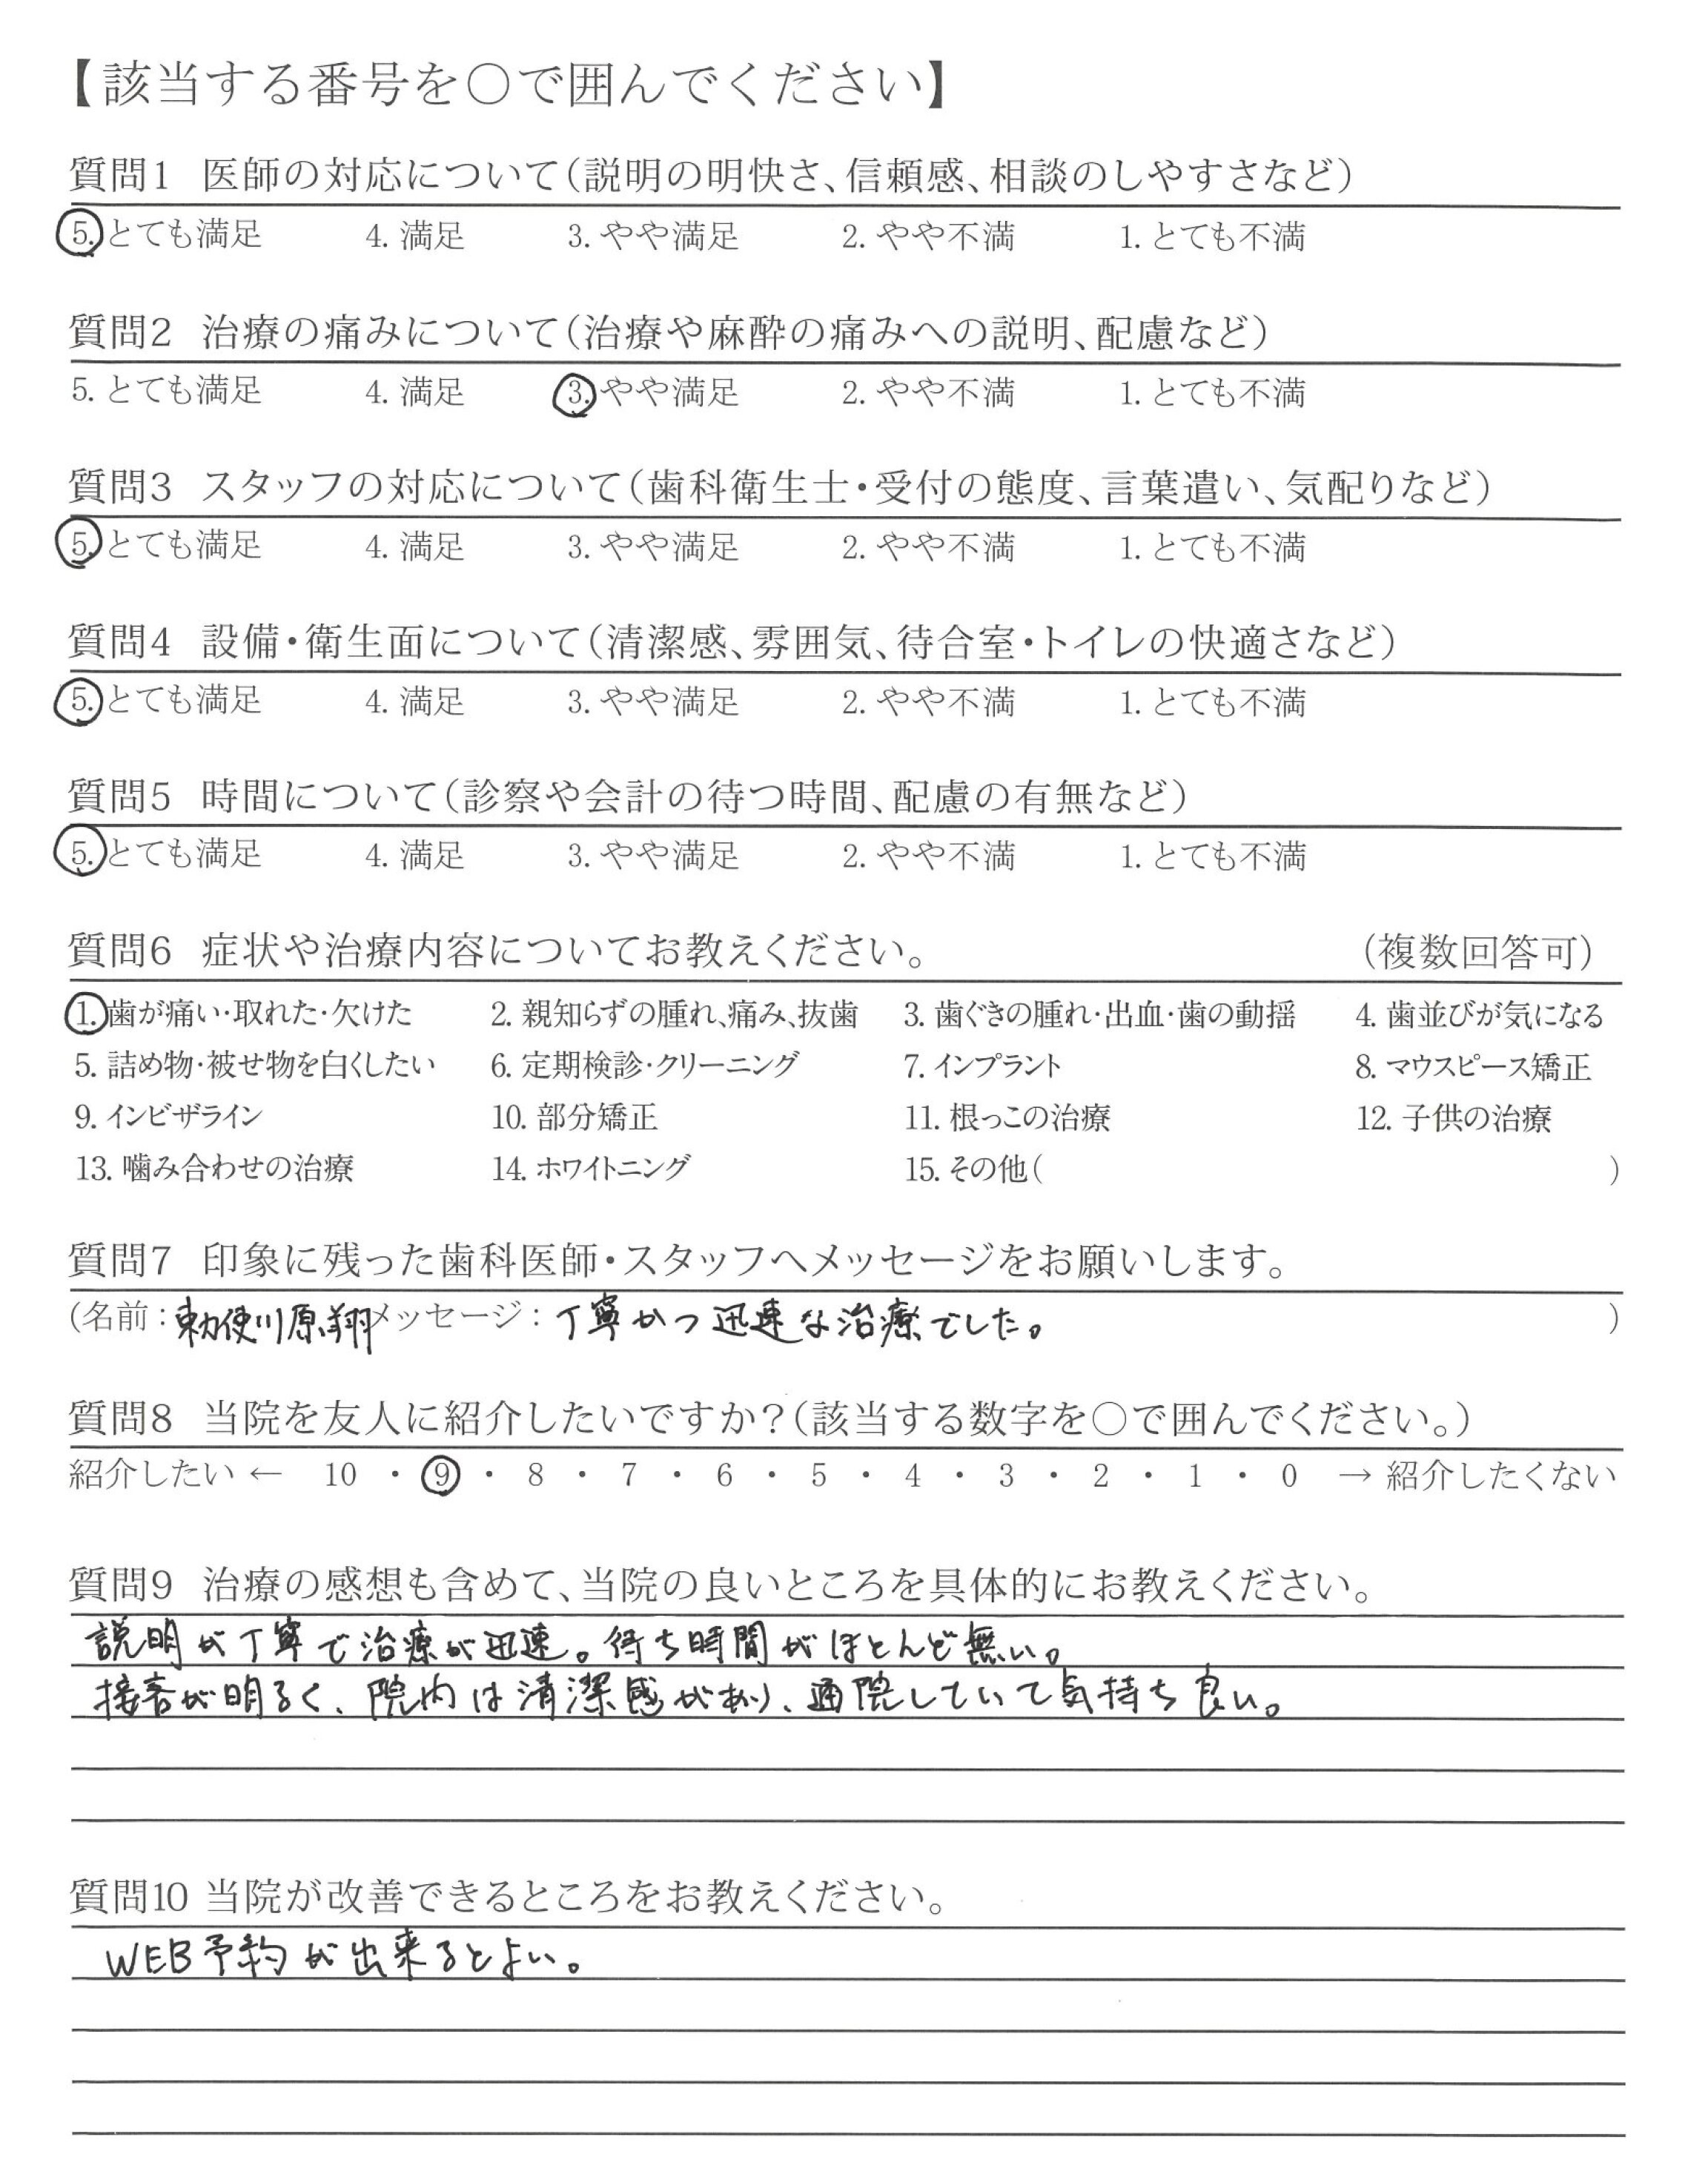 【該当する番号を○で囲んでください】
質問1 医師の対応について(説明の明快さ、信頼感、相談のしやすさなど)
5. とても満足 4. 満足 3. やや満足 2. やや不満 1. とても不満
質問2 治療の痛みについて(治療や麻酔の痛みへの説明、配慮など)
5. とても満足 4. 満足 3. やや満足 2. やや不満 1. とても不満
質問3 スタッフの対応について(歯科衛生士・受付の態度、言葉遣い、気配りなど)
5. とても満足 4. 満足 3. やや満足 2. やや不満 1. とても不満
質問4 設備・衛生面について(清潔感、雰囲気、待合室・トイレの快適さなど)
5. とても満足 4. 満足 3. やや満足 2. やや不満 1. とても不満
質問5 時間について(診察や会計の待つ時間、配慮の有無など)
5. とても満足 4. 満足 3. やや満足 2. やや不満 1. とても不満
質問6 症状や治療内容についてお教えください。 (複数回答可)
1. 歯が痛い・取れた・欠けた 2. 親知らずの腫れ、痛み、抜歯 3. 歯ぐきの腫れ・出血・歯の動揺 4. 歯並びが気になる
5. 詰め物・被せ物を白くしたい 6. 定期検診・クリーニング 7. インプラント 8. マウスピース矯正
9. インビザライン 10. 部分矯正 11. 根っこの治療 12. 子供の治療
13. 噛み合わせの治療 14. ホワイトニング 15. その他( )
質問7 印象に残った歯科医師・スタッフへメッセージをお願いします。
(名前:勅使川原翔 メッセージ:丁寧かつ迅速な治療でした。 )
質問8 当院を友人に紹介したいですか?(該当する数字を○で囲んでください。)
紹介したい ← 10 ・ 9 ・ 8 ・ 7 ・ 6 ・ 5 ・ 4 ・ 3 ・ 2 ・ 1 ・ 0 → 紹介したくない
質問9 治療の感想も含めて、当院の良いところを具体的にお教えください。
説明が丁寧で治療が迅速。待ち時間がほとんど無い。
接客が明るく、院内は清潔感があり、通院していて気持ち良い。
質問10 当院が改善できるところをお教えください。
WEB予約が出来るとよい。